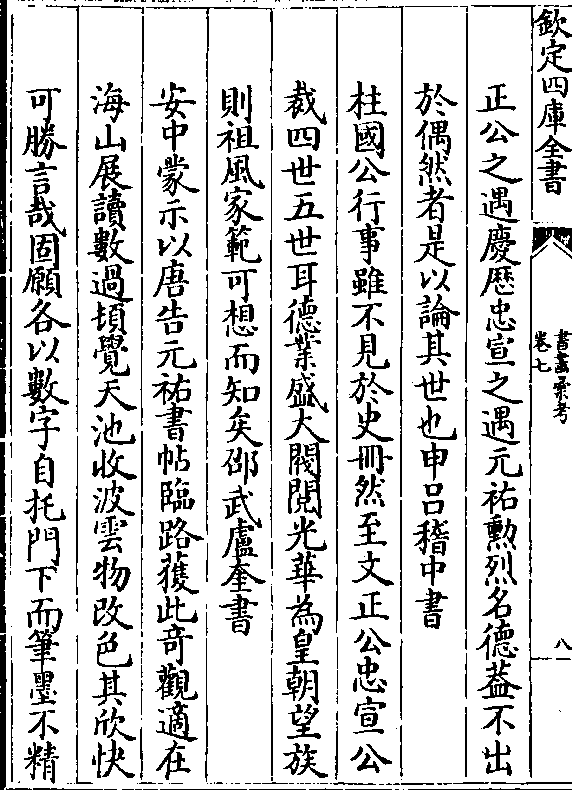 欽定四庫全書
書畫彙考
卷七
八
正公之遇慶歷忠宣之遇元祐勲烈名德葢不出
於偶然者是以論其世也申呂稽中書
柱國公行事雖不見於史冊然至文正公忠宣公
裁四世五世耳德業盛大閥閱光華為皇朝望族
則祖風家範可想而知矣邵武盧奎書
安中蒙示以唐告元祐書帖臨路獲此奇觀適在
海山展讀數過頃覺天池收波雲物改色其欣快
可勝言哉固願各以數字自托門下而筆墨不精